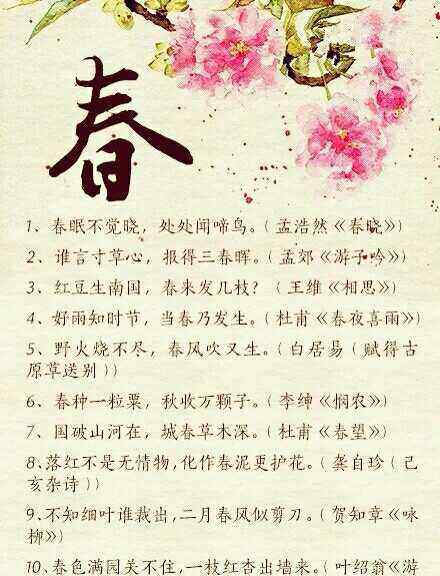 春
1、春眠不觉晓，处处闻啼鸟。(孟浩然《春晓》)
2、谁言寸草心，报得三春晖。(孟郊《游子吟》)
3、红豆生南国，春来发几枝？(王维《相思》)
4、好雨知时节，当春乃发生。(杜甫《春夜喜雨》)
5、野火烧不尽，春风吹又生。(白居易(赋得古
原草送别))
6、春种一粒粟，秋收万颗子。(李绅《悯农》)
7、国破山河在，城春草木深。(杜甫《春望》)
8、落红不是无情物,化作春泥更护花。(龚自珍(己
亥杂诗))
9、不知细叶谁裁出,二月春风似剪刀。(贺知章《咏
柳》)
10、春色满园关不住,一枝红杏出墙来。(叶绍翁《游